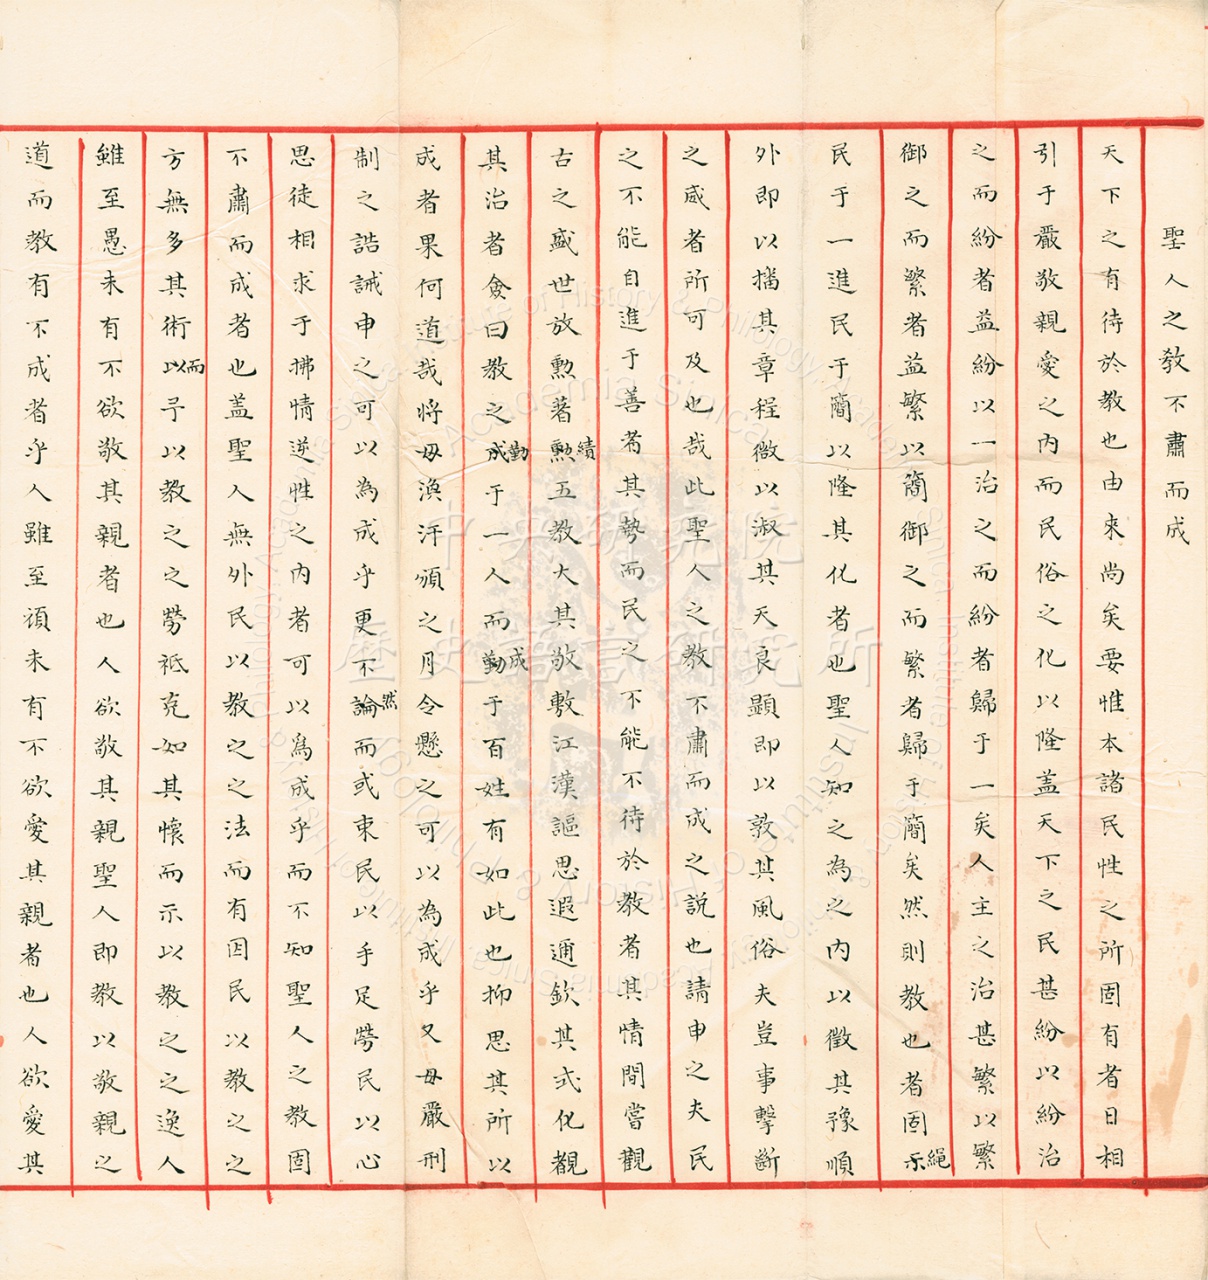 聖人之教不肅而成
天下之有待於教也由來尚矣要惟本諸民性之所固有者日相
引于嚴敬親愛之內而民俗之化以隆蓋天下之民甚紛以紛治
之而紛者益紛以一治之而紛者歸于一矣人主之治甚繁以繁
御之而繁者益繁以簡御之而繁者歸于簡矣然則教也者固示繩
民于一進民于簡以隆其化者也聖人知之為之內以徵其豫順
外即以播其章程微以淑其天良顯即以敦其風俗夫豈事擊斷
之威者所可及也哉此聖人之教不肅而成之說也請申之夫民
之不能自進于善者其勢而民之不能不待於教者其情間嘗觀
古之盛世放勲著勲績五教大其敬敷江漢謳思遐邇欽其式化觀
其治者僉曰教之成勤于一人而勤成于百姓有如此也抑思其所以
成者果何道哉將毋渙汗頒之月令懸之可以為成乎又毋嚴刑
制之誥誡申之可以為成乎更不論然而或束民以手足勞民以心
思徒相求于拂情逆性之內者可以為成乎而不知聖人之教固
不肅而成者也蓋聖人無外民以教之之法而有因民以教之之
方無多其術以而予以教之之勞祗克如其懷而示以教之之逸人
雖至愚未有不欲敬其親者也人欲敬其親聖人即教以敬親之
道而教有不成者乎人雖至頑未有不欲愛其親者也人欲愛其
中央研究院
歷史語言研究所
Institute of History & Philology, Academia Sinica